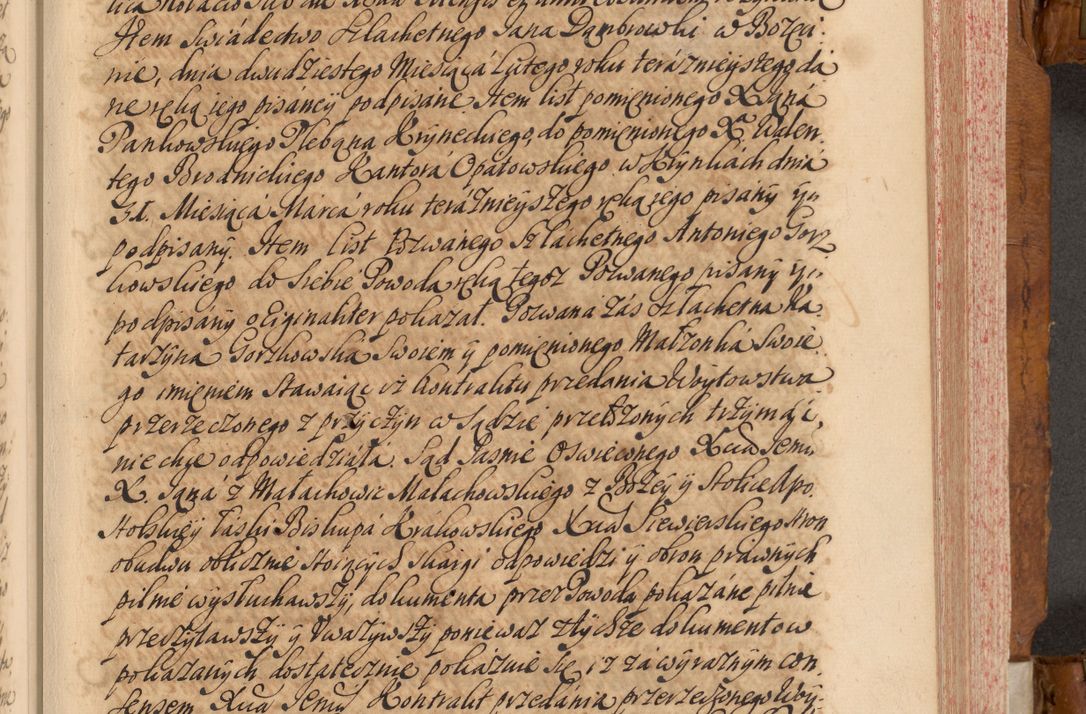 Item Swiadectwo Szlachetnego Jana Dąmbrowski w Bożęci
nie, dnia dwudziestego Miesiąca Lutego roku teraznieyszego, da
ne ręką iego pisáney podpisane. Item list pomięnionego X Jana
Pankowskiego Plebąna Kryneckiego, do pomięnionego X. Walen
tego Brodnickiego Kantorá Opatowskiego, w Krynkách dnia
31. Miesiącá Marcá roku teráznieyszego ręką iego pisany y
podpisany. Item List Pozwanego Szláchetnego Antoniego Gorz
kowskiego do Siebie Powoda ręką tegoz Pozwanego pisany y
podpisany originaliter pokazał. Pozwana zás Szlachetna Ka
tarzyna Gorzkowska Swoiem y pomięnionego Małżonká Swoie
go imięniem Stawaiąc iż kontraktu przedania Woytowstwa
przerzeczonego z przyczyn w Sądzie przełżonych trzymáć,
nie chce odpowiedziała. Sąd Jasnie Oswieconego Xcia Jemci
X. Janá z Małachowic Małachowskiego z Bożey y Stolice Apo
Stolskiey łaski Biskupá Krákowskiego Xcia Siewierskiego Stron
obudwu oblicznie Stoiących Skargi odpowiedzi y obron prawnych
pilnie wysłuchawszy, dokumenta przez Powoda pokazáne pilnie
przeczytawszy y Uwazywszy poniewaz z tychże dokumentow
pokazanych dostatecznie pokáznie się iz zá wyraznym con
sensem Xcia Jemci Kontrakt przedánia przerzeczonego Woy